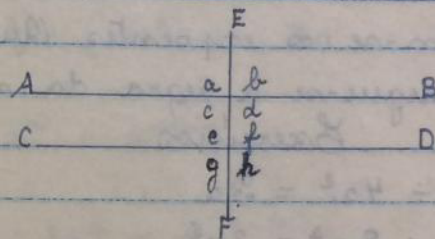 E
A a b B
c d
C e f D
g h
F